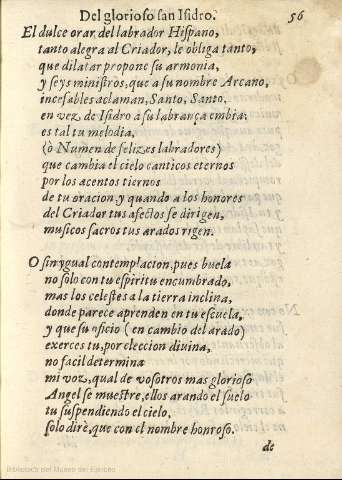 Del glorioso san Isidro. 56
El dulce orar del labrador Hispano,
tanto alegra al Criador, le obliga tanto,
que dilatar propone su armonia,
y seys ministros, que a su nombre Arcano,
incesables aclaman, Santo, Santo,
en vez de Isidro a su labrança embia:
es tal tu melodia,
(ò Numen de felizes labradores)
que cambia el cielo canticos eternos
por los acentos tiernos
de tu oracion, y quando a los honores
del Criador tus afectos se dirigen,
musicos sacros tus arados rigen.
O sin ygual contemplacion, pues buela
no solo con tu espiritu encumbrado,
mas los celestes a la tierra inclina,
donde parece aprenden en tu escuela,
y que su oficio (en cambio del arado)
exerces tu, por eleccion diuina,
no facil determina
mi voz, qual de vosotros mas glorioso
Angel se muestre, ellos arando el suelo
tu suspendiendo el cielo,
solo dirè, que con el nombre honroso.
de
Biblioteca del Museo del Ejército